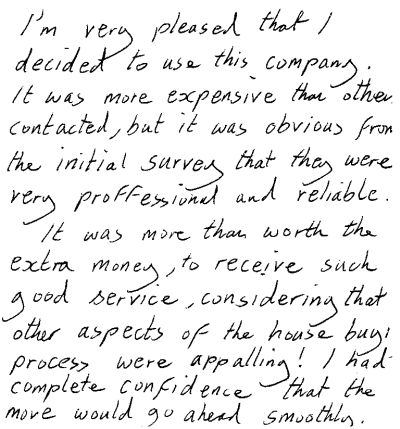 I'm very pleased that I
decided to use this company.
It was more expensive than other
contacted, but it was obvious from
the initial survey that they were
very proffessional and reliable.
It was more than worth the
extra money, to receive such
good service, considering that
other aspects of the house buyi
process were appalling! I had
complete confidence that the
move would go ahead smoothly.